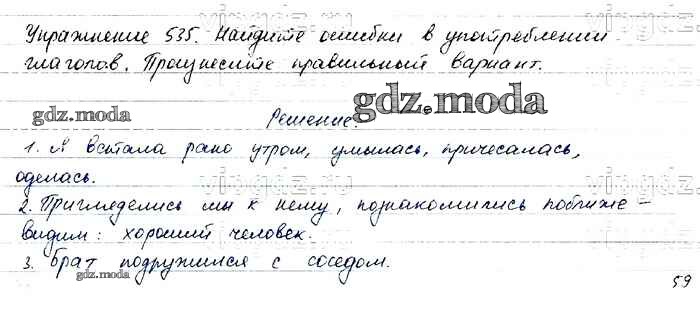 Упражнение 535. Найдите ошибки в употреблении
глаголов. Произнесите правильный вариант.
gdz.moda
gdz.moda
Решение.
1. Я встала рано утром, умылась, причесалась,
оделась.
2. Пригляделись мы к нему, познакомились поближе –
видим: хороший человек.
3. Брат подружился с соседом.
gdz.moda
59